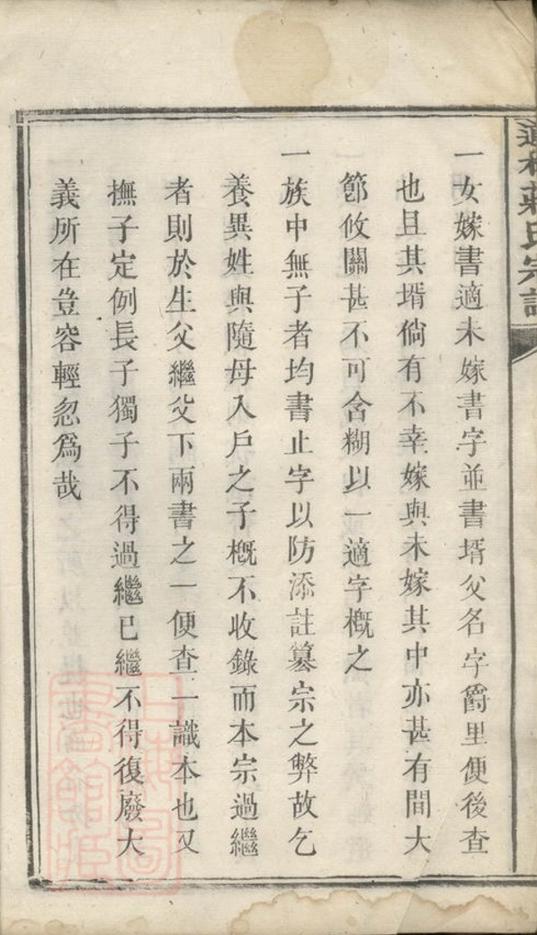 蔣氏宗譜
一女嫁書適未嫁書字並書壻父名字爵里便後查
也且其壻倘有不幸嫁與未嫁其中亦甚有間大
節攸關甚不可含糊以一適字概之
一族中無子者均書止字以防添註篡宗之弊故乞
養異姓與隨母入戶之子槪不收錄而本宗過繼
者則於生父繼父下兩書之一便查一識本也又
撫子定例長子獨子不得過繼已繼不得復廢大
義所在豈容輕忽爲哉